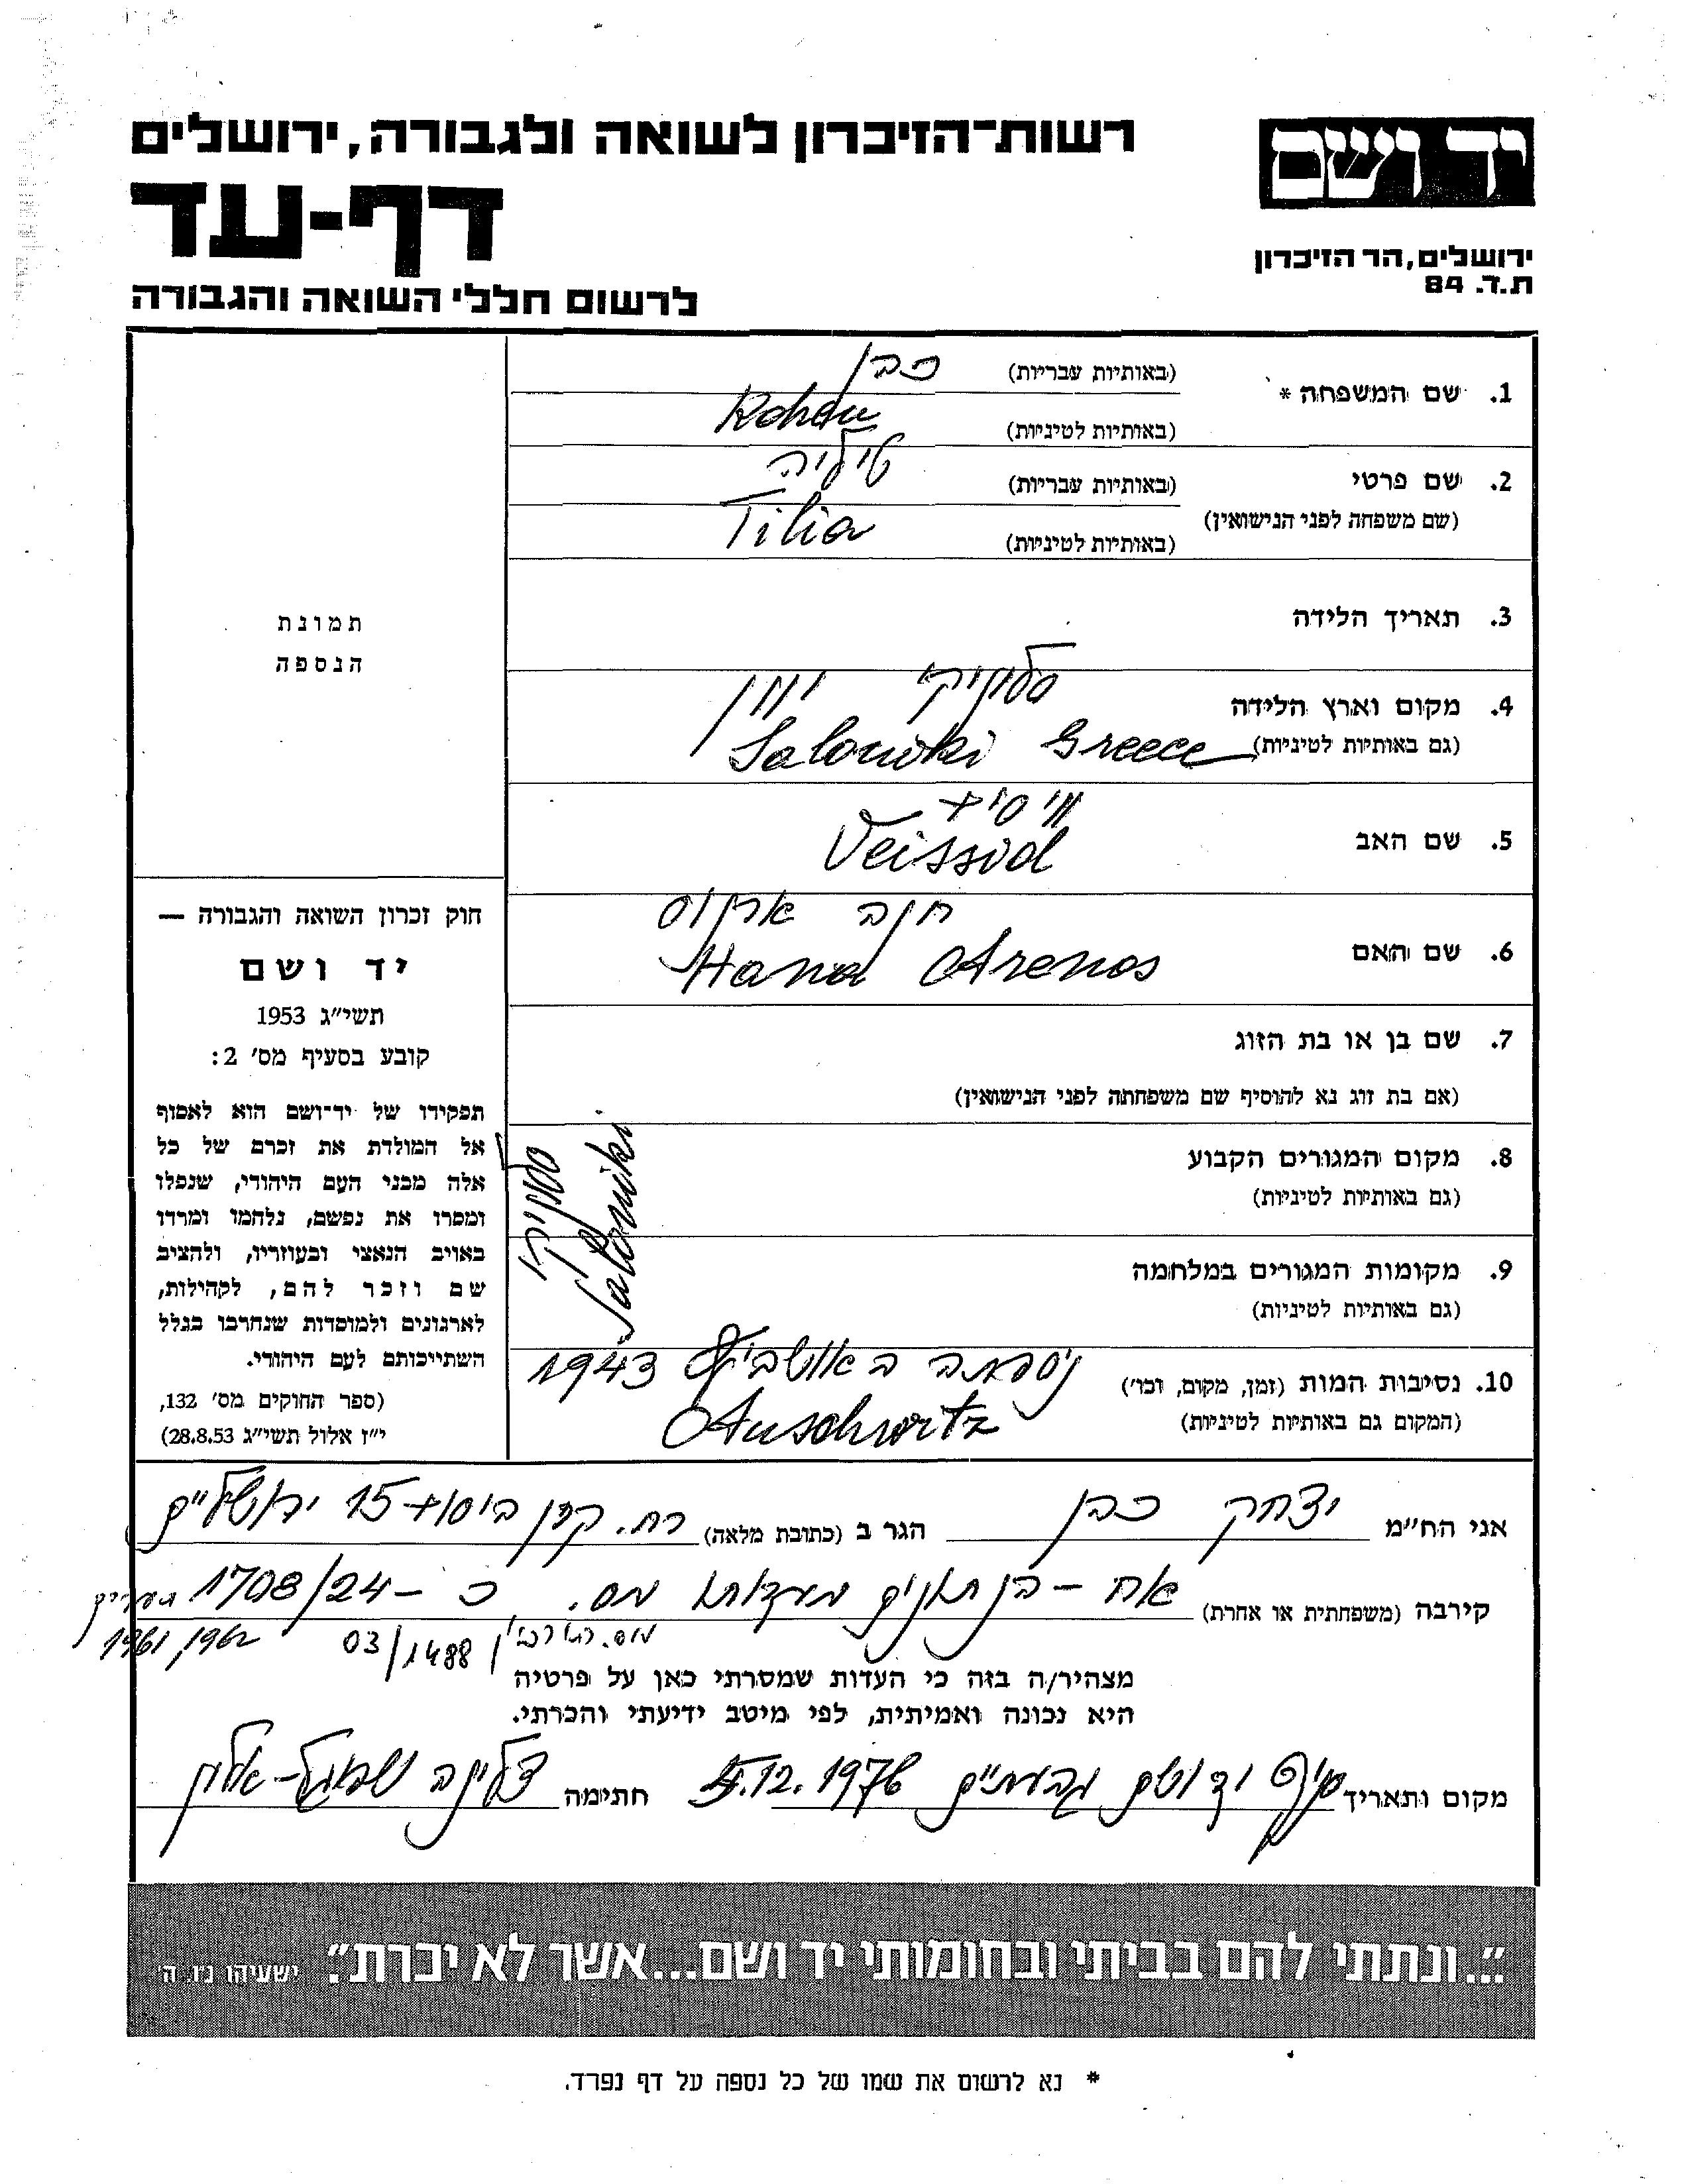 יד ושם
ירושלים, הר הזיכרון
ת.ד. 84
רשות־הזיכרון לשואה ולגבורה, ירושלים
דף-עד
לרשום חללי השואה והגבורה
1. שם המשפחה * (באותיות עבריות) כהן
(באותיות לטיניות) Kohen
2. שם פרטי (באותיות עבריות) טיליה
(שם משפחה לפני הנישואין) (באותיות לטיניות) Tilia
3. תאריך הלידה
4. מקום וארץ הלידה סלוניקי יוון
(גם באותיות לטיניות) Saloniki Greece
5. שם האב ויסיד
Veissid
6. שם האם חנה ארנוס
Hana Arenos
7. שם בן או בת הזוג
(אם בת זוג נא להוסיף שם משפחתה לפני הנישואין)
8. מקום המגורים הקבוע סלוניקי
(גם באותיות לטיניות) Saloniki
9. מקומות המגורים במלחמה
(גם באותיות לטיניות)
10. נסיבות המות (זמן, מקום, וכו') ניספתה באושביץ 1943
(המקום גם באותיות לטיניות) Auschwitz
תמונת
הנספה
חוק זכרון השואה והגבורה —
יד ושם
תשי"ג 1953
קובע בסעיף מס' 2:
תפקידו של יד־ושם הוא לאסוף
אל המולדת את זכרם של כל
אלה מבני העם היהודי, שנפלו
ומסרו את נפשם, נלחמו ומרדו
באויב הנאצי ובעוזריו, ולהציב
שם וזכר להם, לקהילות,
לארגונים ולמוסדות שנחרבו בגלל
השתייכותם לעם היהודי.
(ספר החוקים מס' 132,
י"ז אלול תשי"ג 28.8.53)
אני הח"מ יצחק כהן הגר ב (כתובת מלאה) רח. קרן היסוד 15 ירושלים
קירבה (משפחתית או אחרת) אח – מס. כ – 1708/24
03/1488 1961
מצהיר/ה בזה כי העדות שמסרתי כאן על פרטיה
היא נכונה ואמיתית, לפי מיטב ידיעתי והכרתי.
מקום ותאריך סניף יד ושם גבעתיים 12.1976 חתימה
"...ונתתי להם בביתי ובחומותי יד ושם...אשר לא יכרת". ישעיהו נ"ו ה'
* נא לרשום את שמו של כל נספה על דף נפרד.